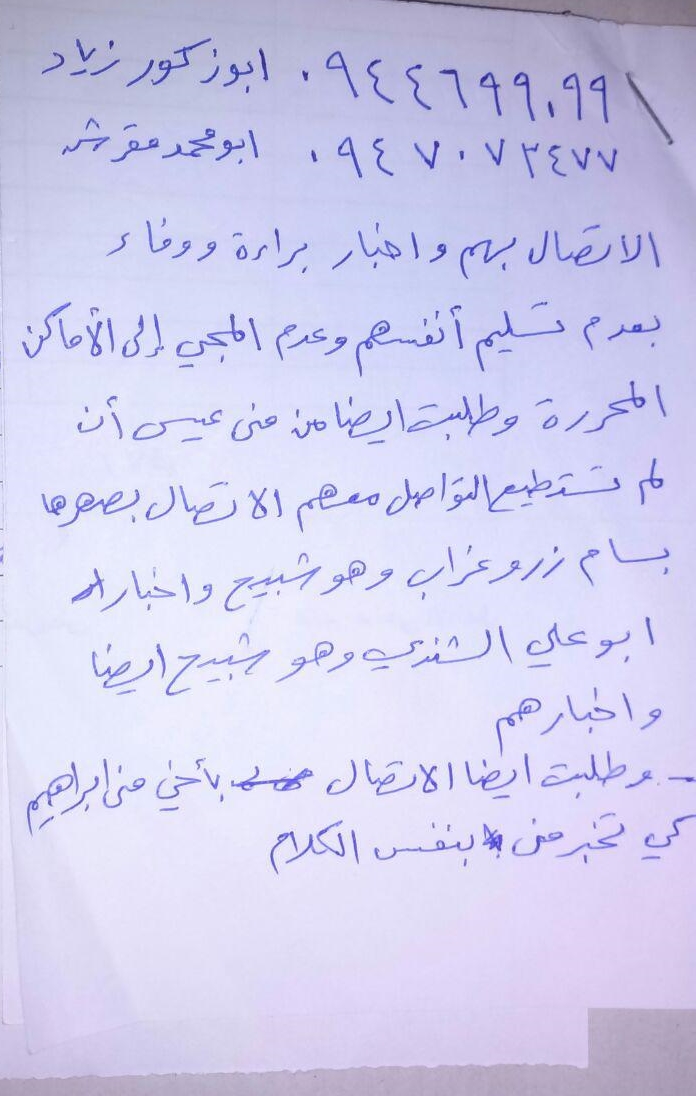 ٠٩٤٤٦٩٩٠٩٩ ابوزكور زياد
٠٩٤٧٠٧٣٤٧٧ ابومحمد مقرش
الاتصال بهم واخبار براءة ووفاء
بعدم تسليم أنفسهم وعدم المجي إلى الأماكن
المحررة وطلبت ايضا من منى عيسى أن
لم تستطيع التواصل معهم الاتصال بصهرها
بسام زروغراب وهو شبيح واخبار
ابو علي الشندي وهو شبيح ايضا
واخبارهم
- وطلبت ايضا الاتصال بأخي منى ابراهيم
كي تخبر منى بنفس الكلام